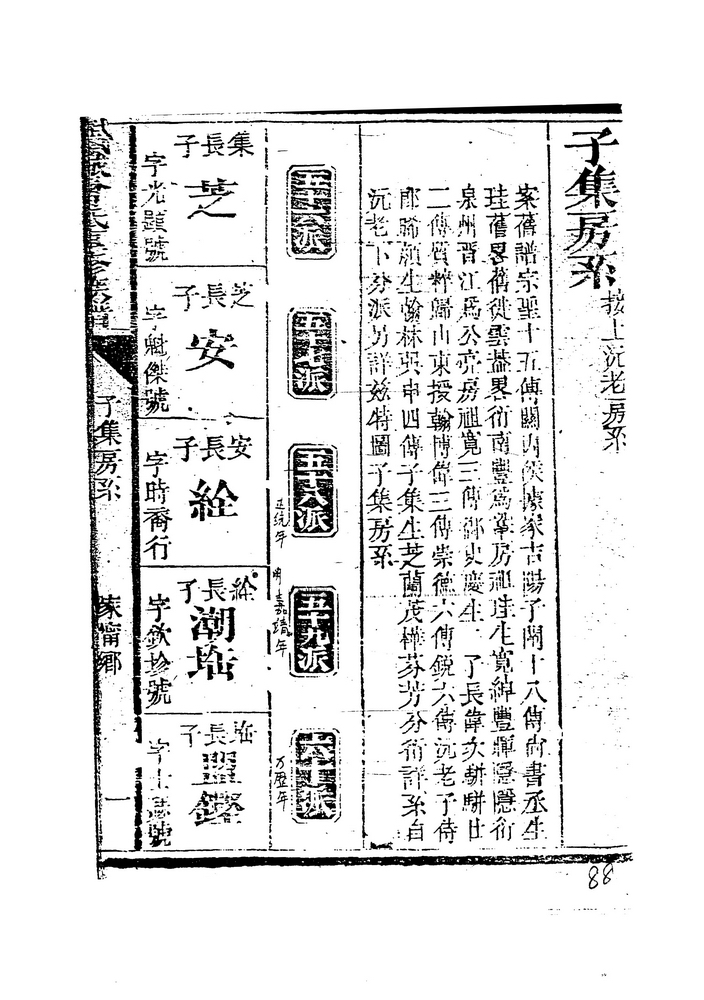 子集房系 按上沅老房系
案舊譜宗聖十五傳關內侯據家吉陽子閘十八傳尚書丞生
珪舊畧舊徙雲蓋畧衍南豐爲鞏房祖珪生寬綽豐暉隱隱衍
泉州晉江爲公亮房祖寬三傳御史慶生二子長偉次耕耕廿
二傳質粹歸山東授翰博偉三傳崇德六傳銳六傳沅老子侍
郎晞顏生翰林巽申四傳子集生芝蘭茂樺芬芳分衍詳系自
沅老下分派另詳兹特圖子集房系
五十六派
五十七派
五十八派
正統年
五十九派
明嘉靖年
六十派
万歷年
集長子
芝
字光顯號
芝長子
安
字魁傑號
安長子
絟
字時裔行
絟長子
潮㙮
字欽珍號
㙮長子
盟鏗
字上 號
子集房系
一
88